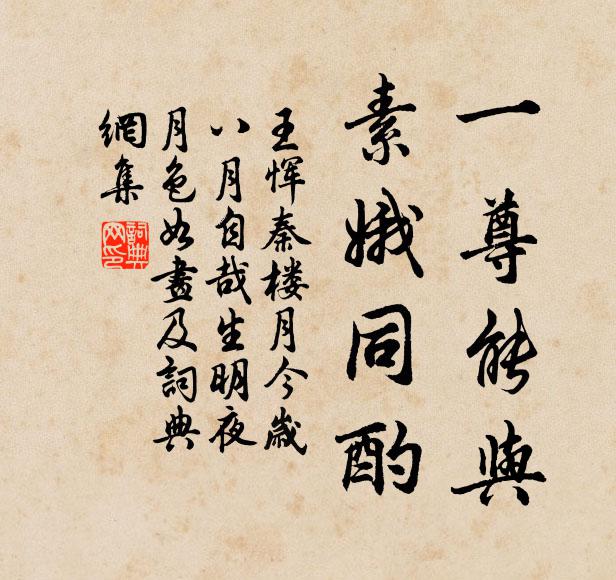 一尊能與
素娥同酌
王惲秦楼月今歲
八月自哉生明夜
月色如晝及詞典
網集
詞典網印